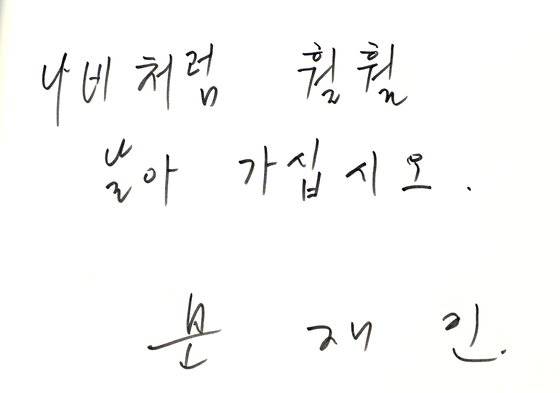 나비처럼 훨훨
날아 가십시오.
문 재 인.